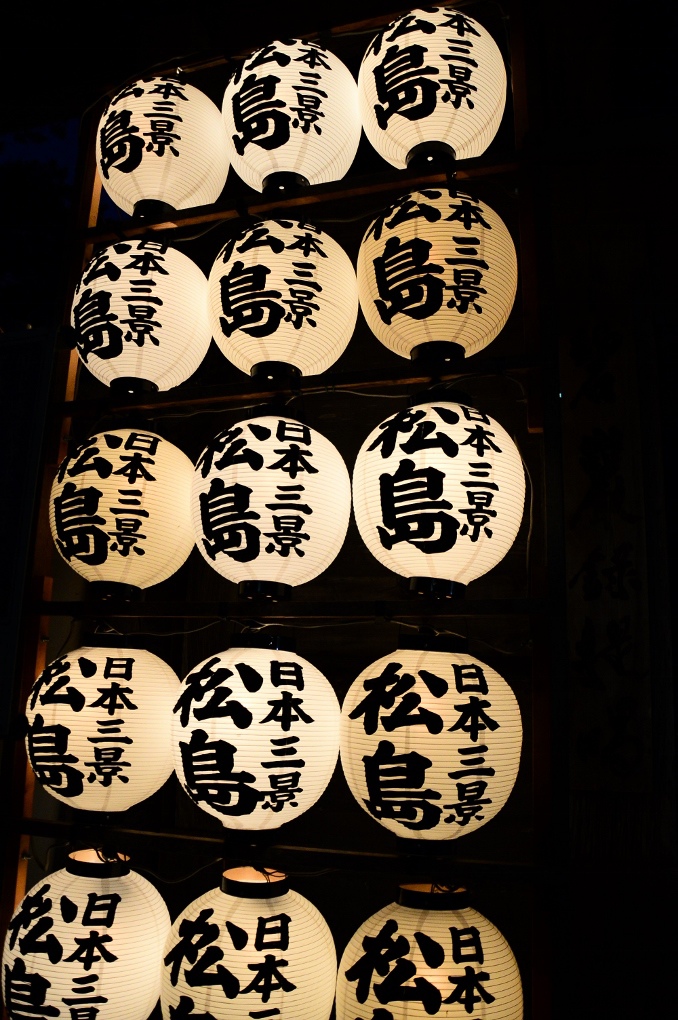 本三景
松島
本三景
松島
本三景
松島
日本三景
松島
日本三景
松島
日本三景
松島
日本三景
松島
日本三景
松島
日本三景
松島
日本三景
松島
日本三景
松島
日本三景
松島
日本三景
松島
日本
松
日本
松